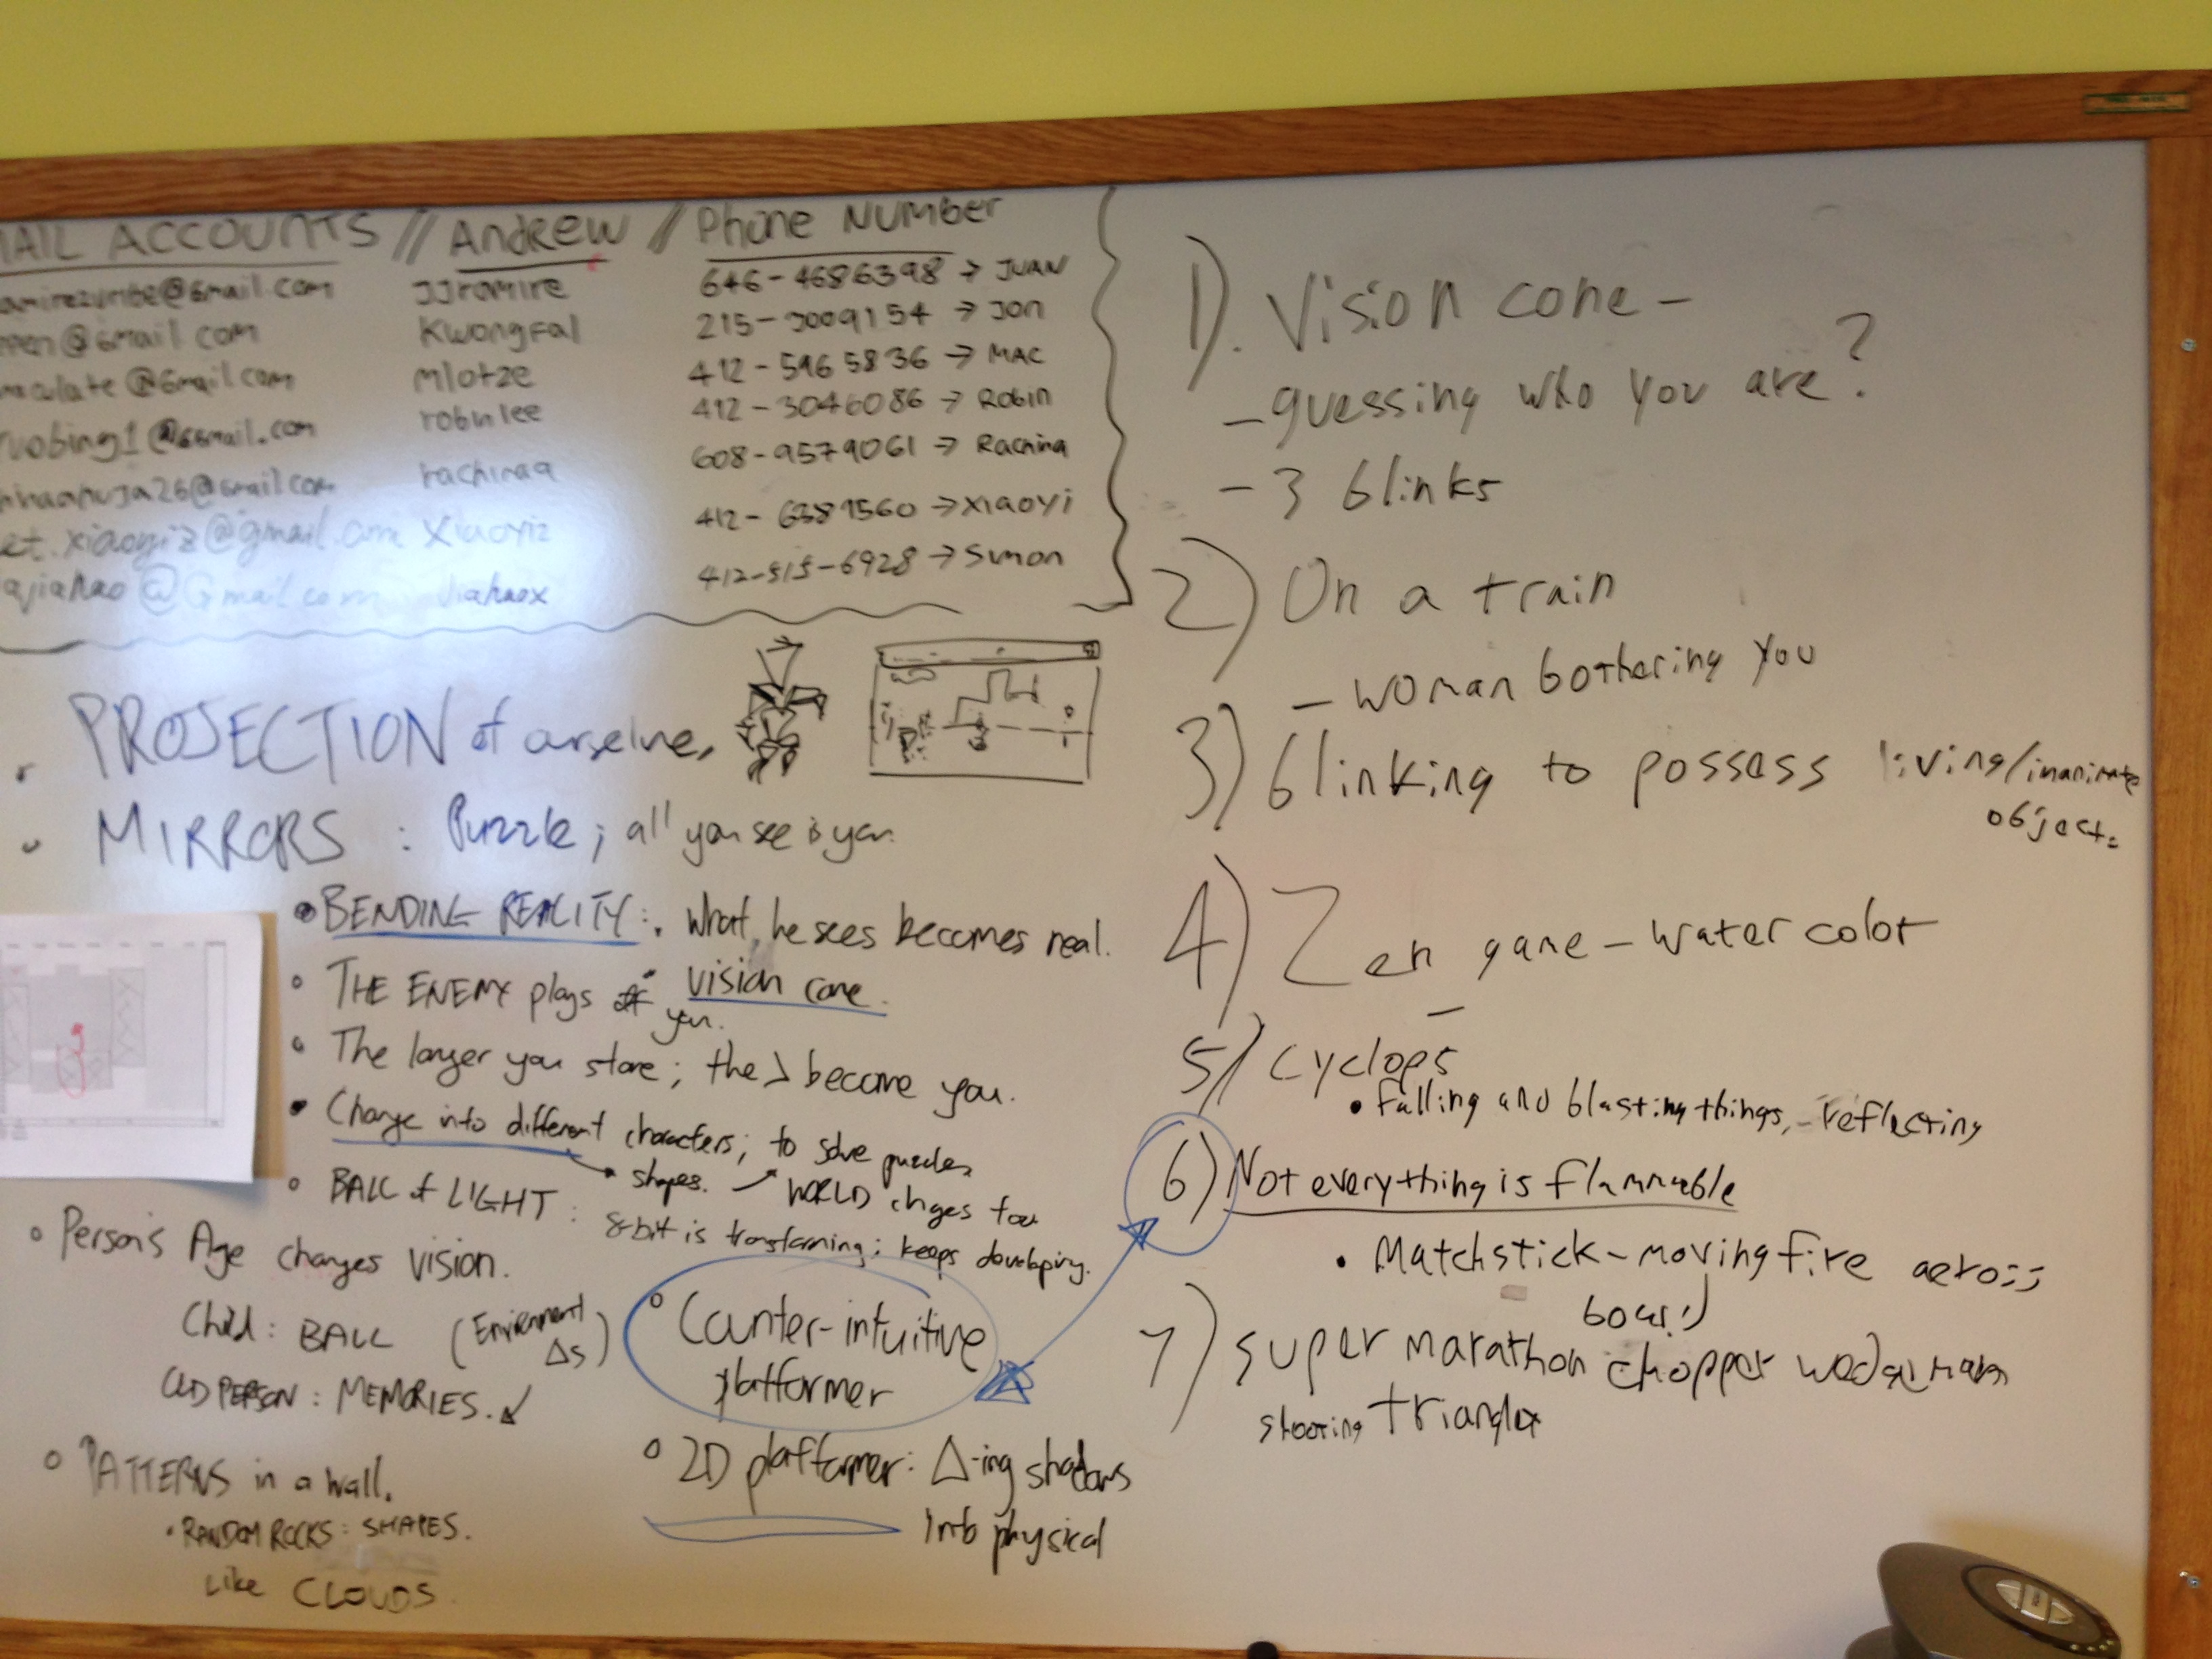 MAIL ACCOUNTS // Andrew // Phone Number
amirezuribe@Gmail.com jjramire 646-4686398 → JUAN
ppen@Gmail.com Kwongfal 215-3009154 → Jon
maculate@Gmail.com mlotze 412-5965836 → MAC
ruobing1@Gmail.com robinlee 412-3046086 → Robin
26@Gmail.com rachinaa 608-9579061 → Rachina
et.xiaoyiz@gmail.com Xiaoyiz 412-6381560 → xiaoyi
ajiahao@Gmail.com Jiahaox 412-515-6928 → Simon
• PROJECTION of
• MIRRORS : Puzzle; all you see is you.
• BENDING REALITY: what he sees becomes real.
• THE ENEMY plays you. • vision cone.
• The longer you stare; the > become you.
• Change into different characters; to solve puzzles
shapes. → WORLD chges too
• BALL of LIGHT : 8-bit is transforming; keeps developing.
• Person's Age changes vision.
Child : BALL (Envirnment Δs)
OLD PERSON : MEMORIES.
• PATTERNS in a wall.
• RANDOM ROCKS : SHAPES.
Like CLOUDS.
• Counter-intuitive
platformer
• 2D platformer: Δ-ing shadows
into physical
1). Vision cone -
- guessing who you are?
- 3 blinks
2) On a train
- woman bothering you
3) blinking to possess living/inanimate
object.
4) Zen game - water color
-
5) cyclops
• falling and blasting things, - reflecting
6) Not everything is flammable
• Matchstick - moving fire across
board
7) super marathon chopper
shooting triangle